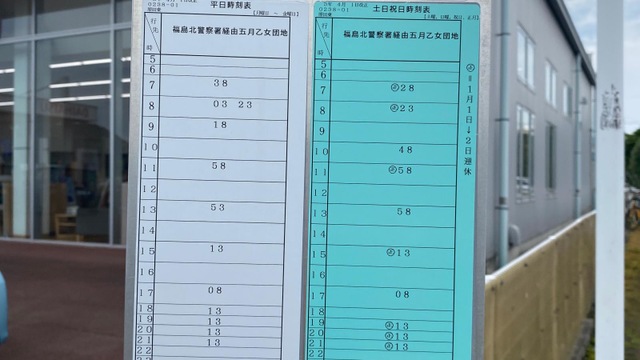 平日時刻表
0238-01
【月曜日 ~ 金曜日】
行先
時
福島北警察署経由五月乙女団地
5
6
7 38
8 03 23
9 18
10
11 58
12
13 53
14
15 13
16
17 08
18 13
19 13
20 13
21 13
22
土日祝日時刻表
0238-01
行先
時
福島北警察署経由五月乙女団地
5
6
7 ㊣28
8 ㊣23
9
10 48
11 ㊣58
12
13 58
14
15 ㊣13
16
17 08
18
19 ㊣13
20 ㊣13
21 ㊣13
22
1月1日→2日運休